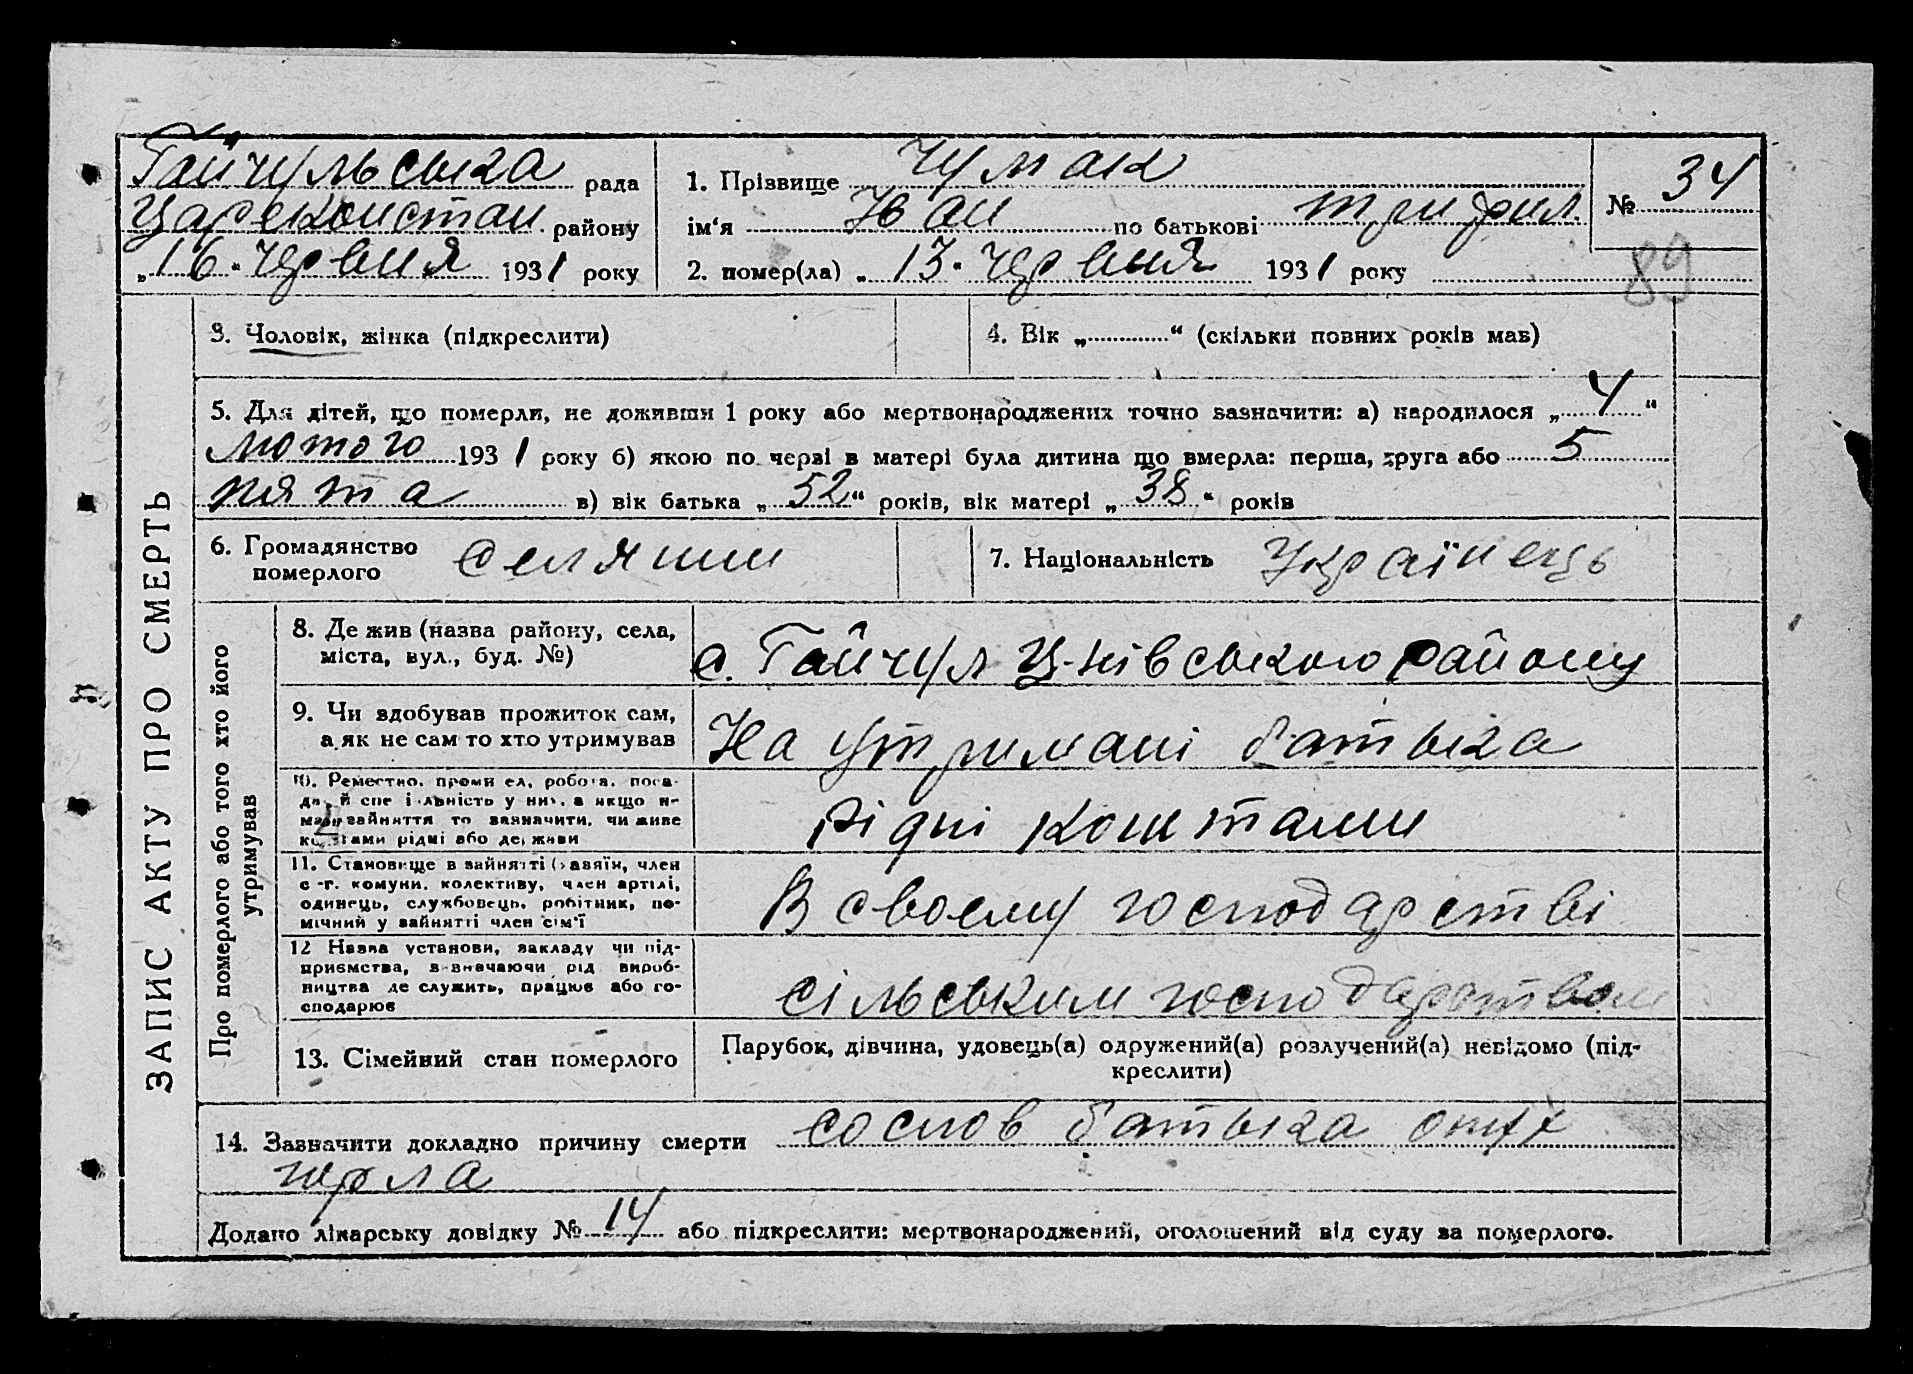 Гайчульська рада
Цареконстан. району
„16“ червня 1931 року
1. Прізвище Чумак
ім‘я Іван по батькові Трифил.
2. помер(ла) „13“ червня 1931 року
№ 34
89
ЗАПИС АКТУ ПРО СМЕРТЬ
3. Чоловік, жінка (підкреслити)
4. Вік „ “ (скільки повних років мав)
5. Для дітей, що померли, не доживши 1 року або мертвонароджених точно зазначити: а) народилося „4“
лютого 1931 року б) якою по черзі в матері була дитина що вмерла: перша, друга або 5
пята в) вік батька „52“ років, вік матері „38“ років
6. Громадянство
померлого селянин
7. Національність Українець
Про померлого або того хто його
утримував
8. Де жив (назва району, села,
міста, вул., буд. №)
с. Гайчул Ц-нівського району
9. Чи здобував прожиток сам,
а як не сам то хто утримував
На утримані батька
10. Ремество, промисел, робота, поса-
да й спеціяльність у них, а якщо н-
має зайняття то зазначити, чи живе
коштами рідні або держави
рідні коштами
11. Становище в зайнятті (хазяїн, член
с.-г. комуни, колективу, член артілі,
одинець, службовець, робітник, по-
мічний у зайнятті член сім‘ї
В своєму господарстві
12 Назва установи, закладу чи під-
приємства, зазначаючи рід вироб-
ництва де служить, працює або го-
сподарює
сільським господарством
13. Сімейний стан померлого
Парубок, дівчина, удовець(а) одружений(а) розлучений(а) невідомо (під-
креслити)
14. Зазначити докладно причину смерти со слов батька опух
горла
Додано лікарську довідку № 14 або підкреслити: мертвонароджений, оголошений від суду за померлого.